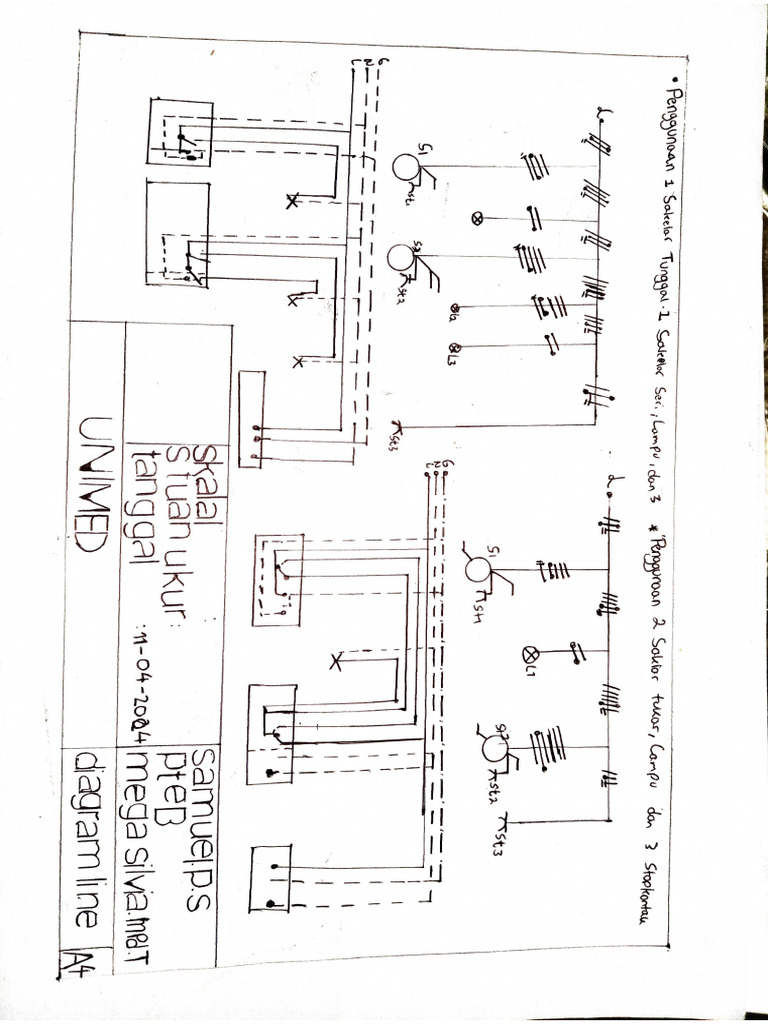 • Penggunaan 1 Sakelar Tunggal.1 Sakelar Seri, Lampu, dan 3 * Penggunaan 2 Saklar tukar, Lampu dan 3 Stopkontak
L
S1
st1
S2
st2
L2
L3
st3
L
S1
st1
L1
st2
st3
G
N
L
G
N
L
skalal
stuan ukur:
tanggal :11-04-2024
samuel.p.s
pteB
mega silvia.mpd.T
UNIMED
diagram line
A4